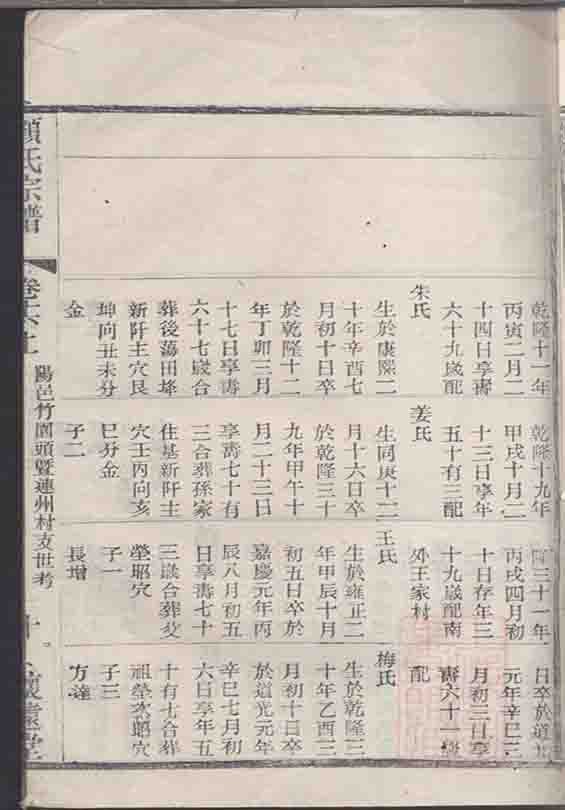 乾隆十一年
丙寅二月二
十四日享壽
六十九歲配
朱氏
生於康熙二
十年辛酉七
月初十日卒
於乾隆十二
年丁卯三月
十七日享壽
六十七歲合
葬後蕩田埄
新阡主穴艮
坤向丑未分
金
乾隆十九年
甲戌十月二
十三日享年
五十有三配
姜氏
生同庚十二
月十六日卒
於乾隆三十
九年甲午十
月二十三日
享壽七十有
三合葬孫家
住基新阡主
穴壬丙向亥
巳分金
子二
隆三十一年
丙戌四月初
十日存年三
十九歲配南
外王家村
王氏
生於雍正二
年甲辰十月
初五日卒於
嘉慶元年丙
辰八月初五
日享壽七十
三歲合葬父
塋昭穴
子一
長增
日卒於道光
元年辛巳三
月初三日享
壽六十一歲
配
梅氏
生於乾隆三
十年乙酉三
月初十日卒
於道光元年
辛巳七月初
六日享年五
十有七合葬
祖塋次昭穴
子三
方達
顧氏宗譜
卷六上
陽邑竹園頭暨連州村支世考
十